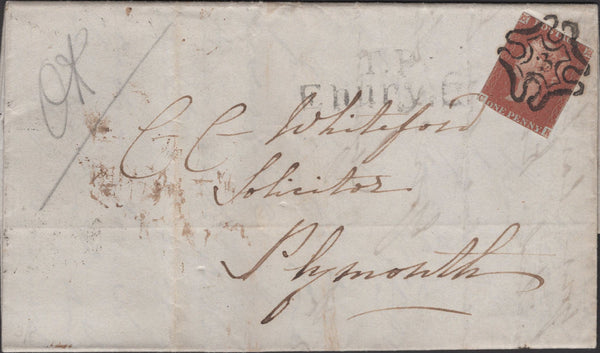 CK
T.P
Ebury S
3
ONE PENNY
C C Whiteford
Solicitor
Plymouth